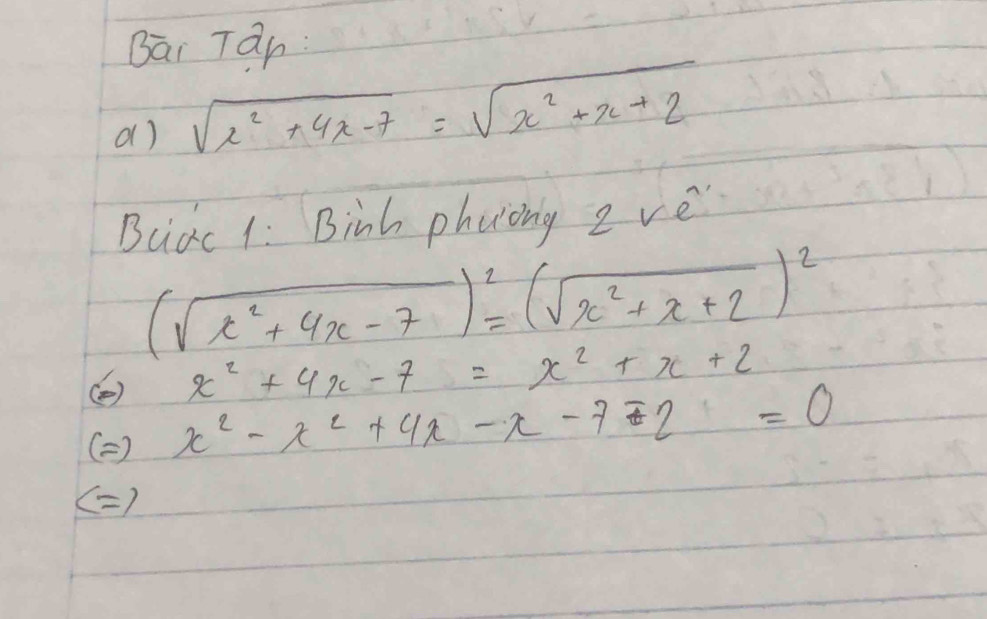 Bài Tập:
a) √(x² + 4x - 7) = √(x² + x + 2)
Bước 1: Bình phương 2 vế
(√(x² + 4x - 7))² = (√(x² + x + 2))²
(=) x² + 4x - 7 = x² + x + 2
(=) x² - x² + 4x - x - 7 - 2 = 0
(=)